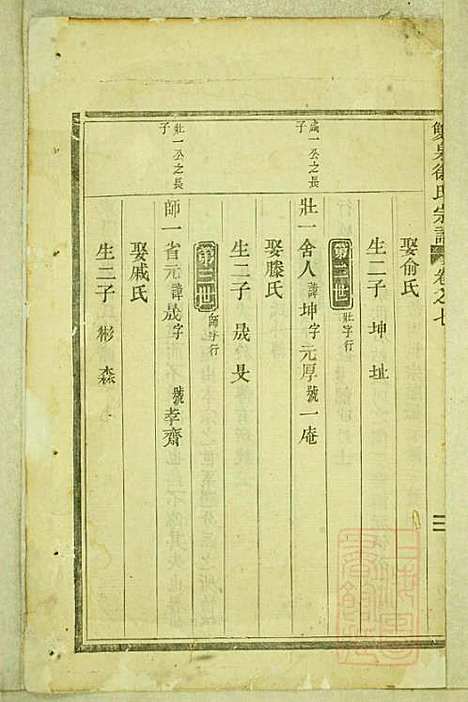 雙泉徐氏宗譜 卷之七 二
娶俞氏
生二子 坤 址
第二世 壯字行
咸一公之長子
壯一舍人諱坤字元厚號一庵
娶滕氏
生二子 晟 旻
第三世 師字行
壯一公之長子
師一省元諱晟字 號孝齋
娶戚氏
生二子 彬 森